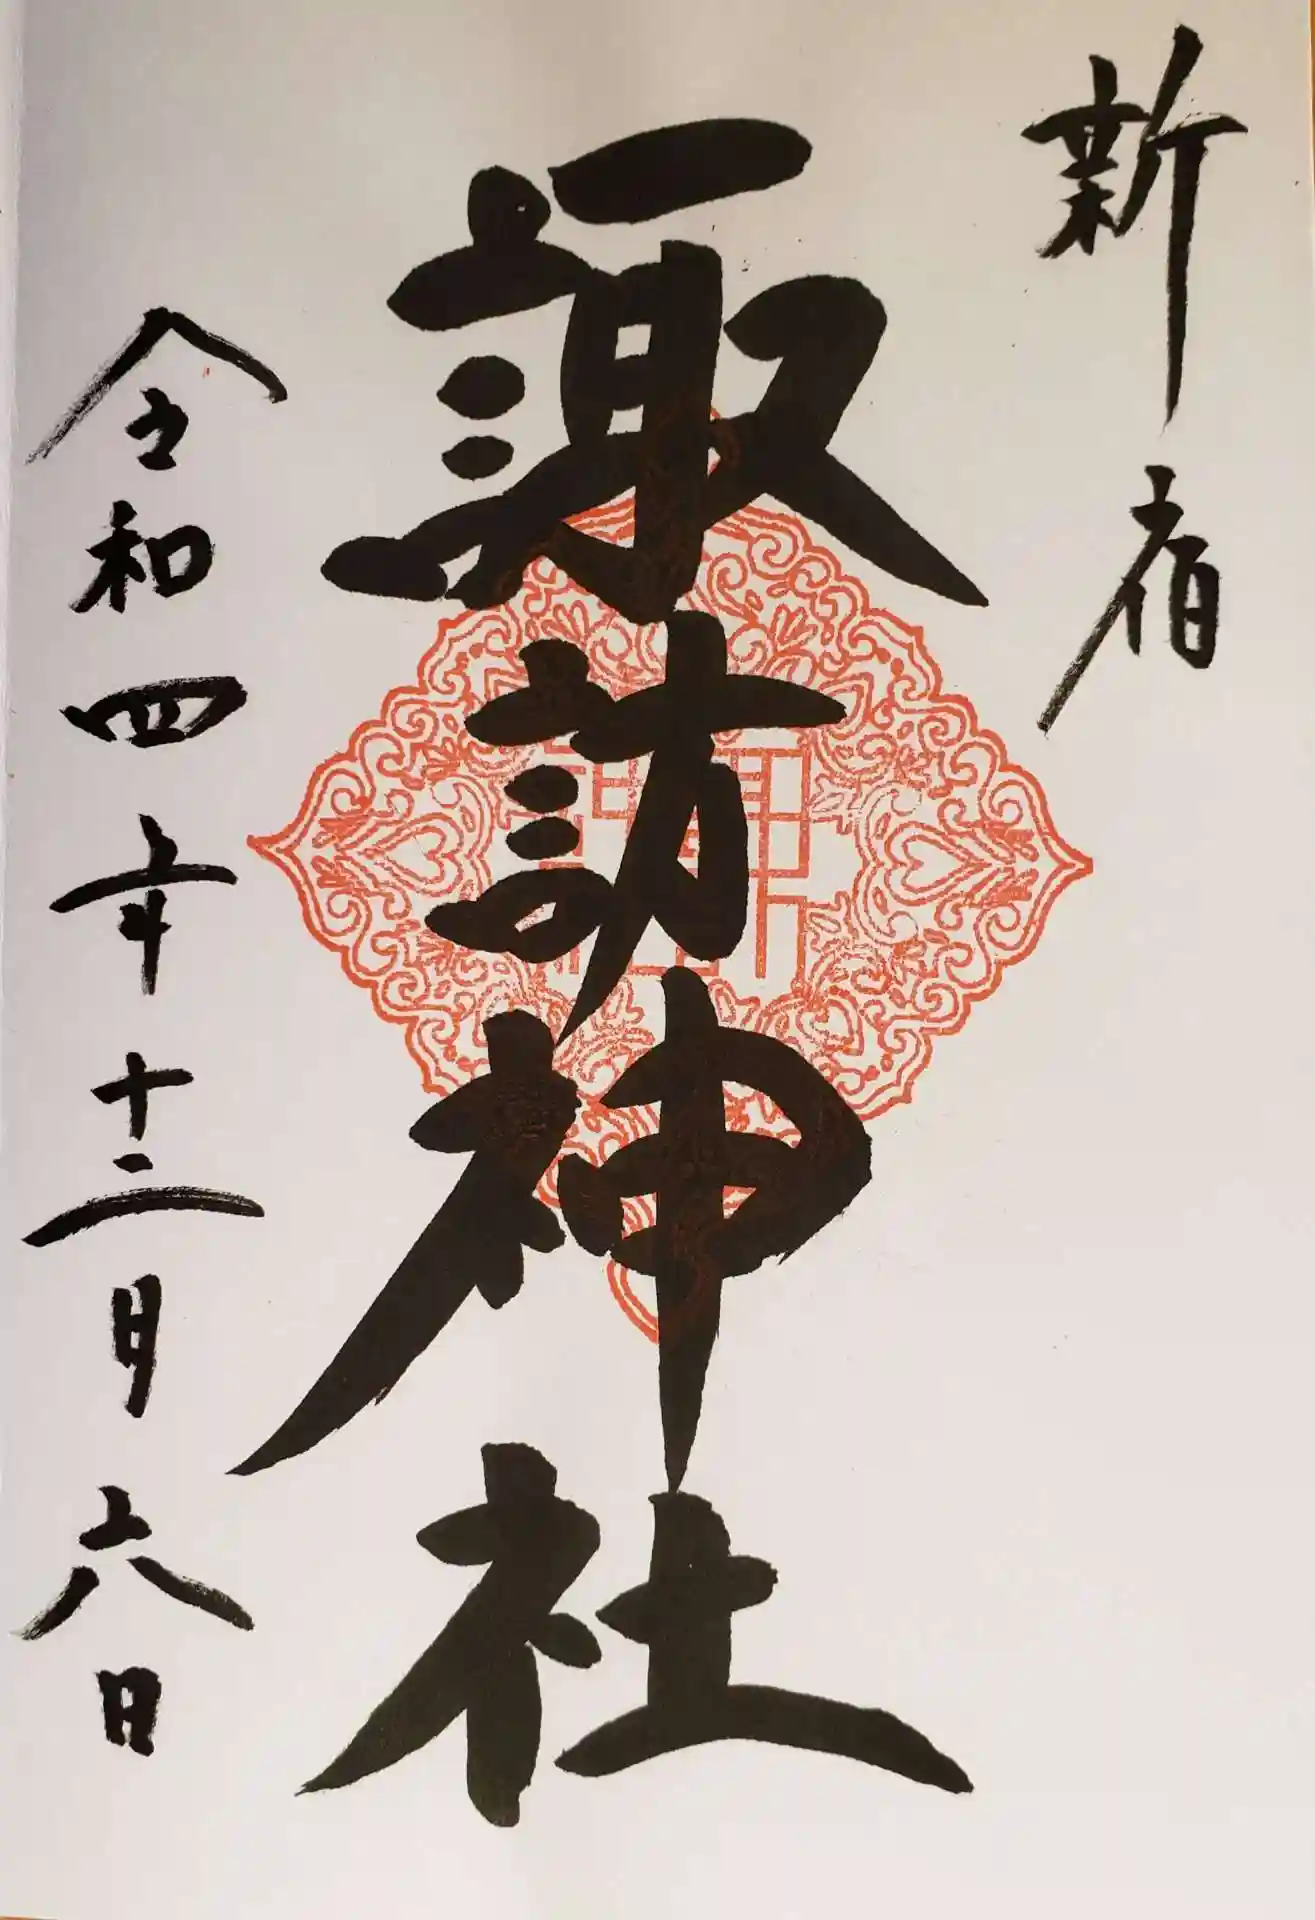 新宿
諏訪神社
令和四年十二月六日